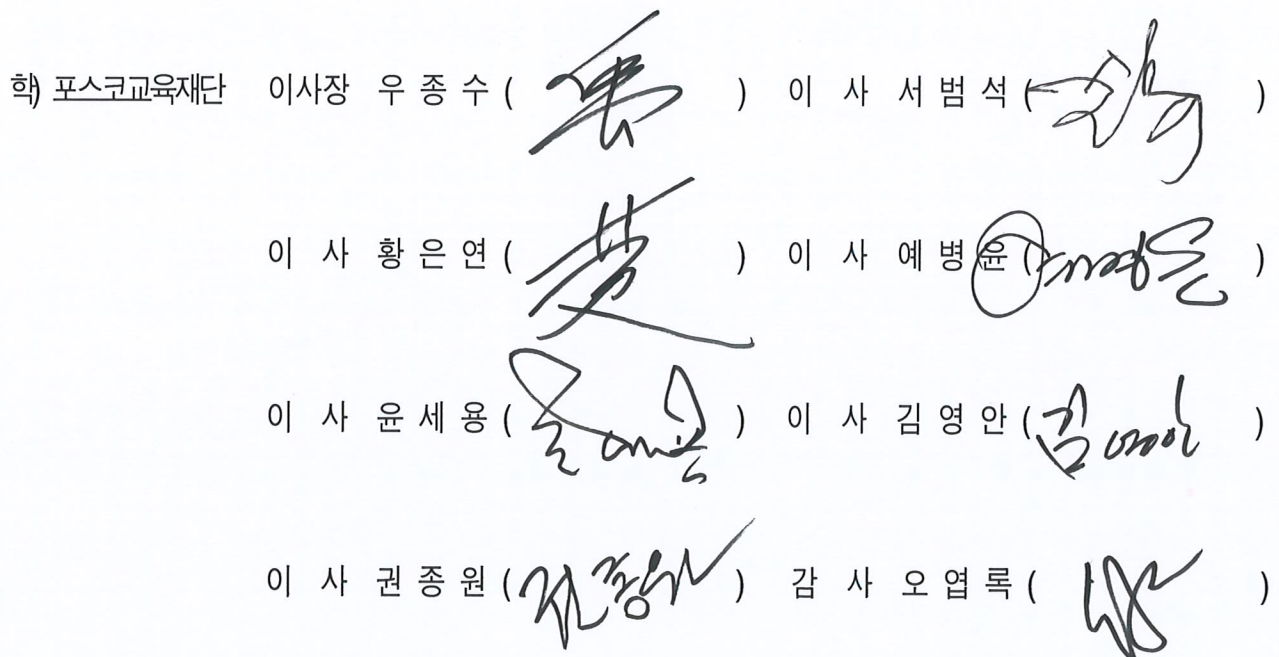 학) 포스코교육재단 이사장 우종수 ( ) 이 사 서범석 ( )
이 사 황은연 ( ) 이 사 예병윤 ( )
이 사 윤세용 ( ) 이 사 김영안 (김영안)
이 사 권종원 (권종원) 감 사 오엽록 ( )